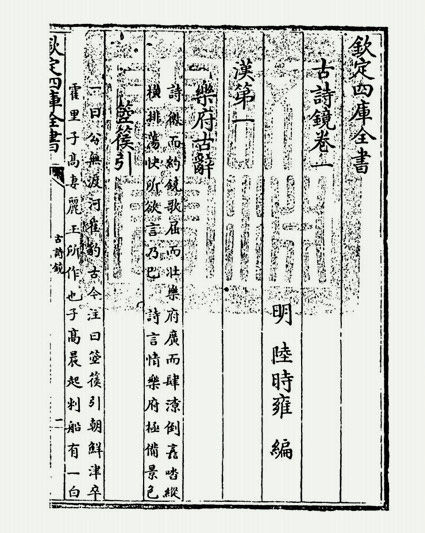 欽定四庫全書
古詩鏡卷一
明 陸時雍 編
漢第一
樂府古辭
詩微而約鐃歌屈而壯樂府廣而肆潦倒喜嗜縱
橫排蕩快所欲言乃已 詩言情樂府極備景色
箜篌引
一曰公無渡河崔豹古今注曰箜篌引朝鮮津卒
霍里子高妻麗玉所作也子高晨起刺船有一白
欽定四庫全書
古詩鏡
二